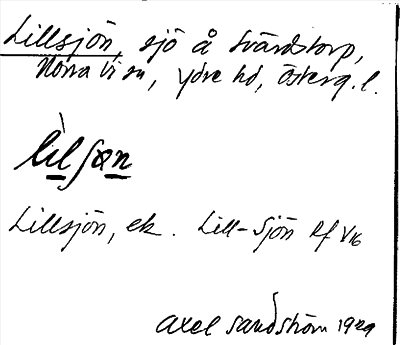 Lillsjön, sjö å Svärdstorp,
Norra Vi sn, Ydre hd, Österg. l.
Lillsjön, ek. Lill-Sjön Rf V16
Axel Sandström 1929